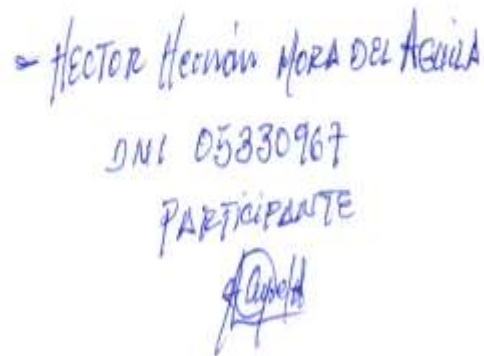 - HECTOR Hernán MORA DEL AGUILA
DNI 05330967
PARTICIPANTE